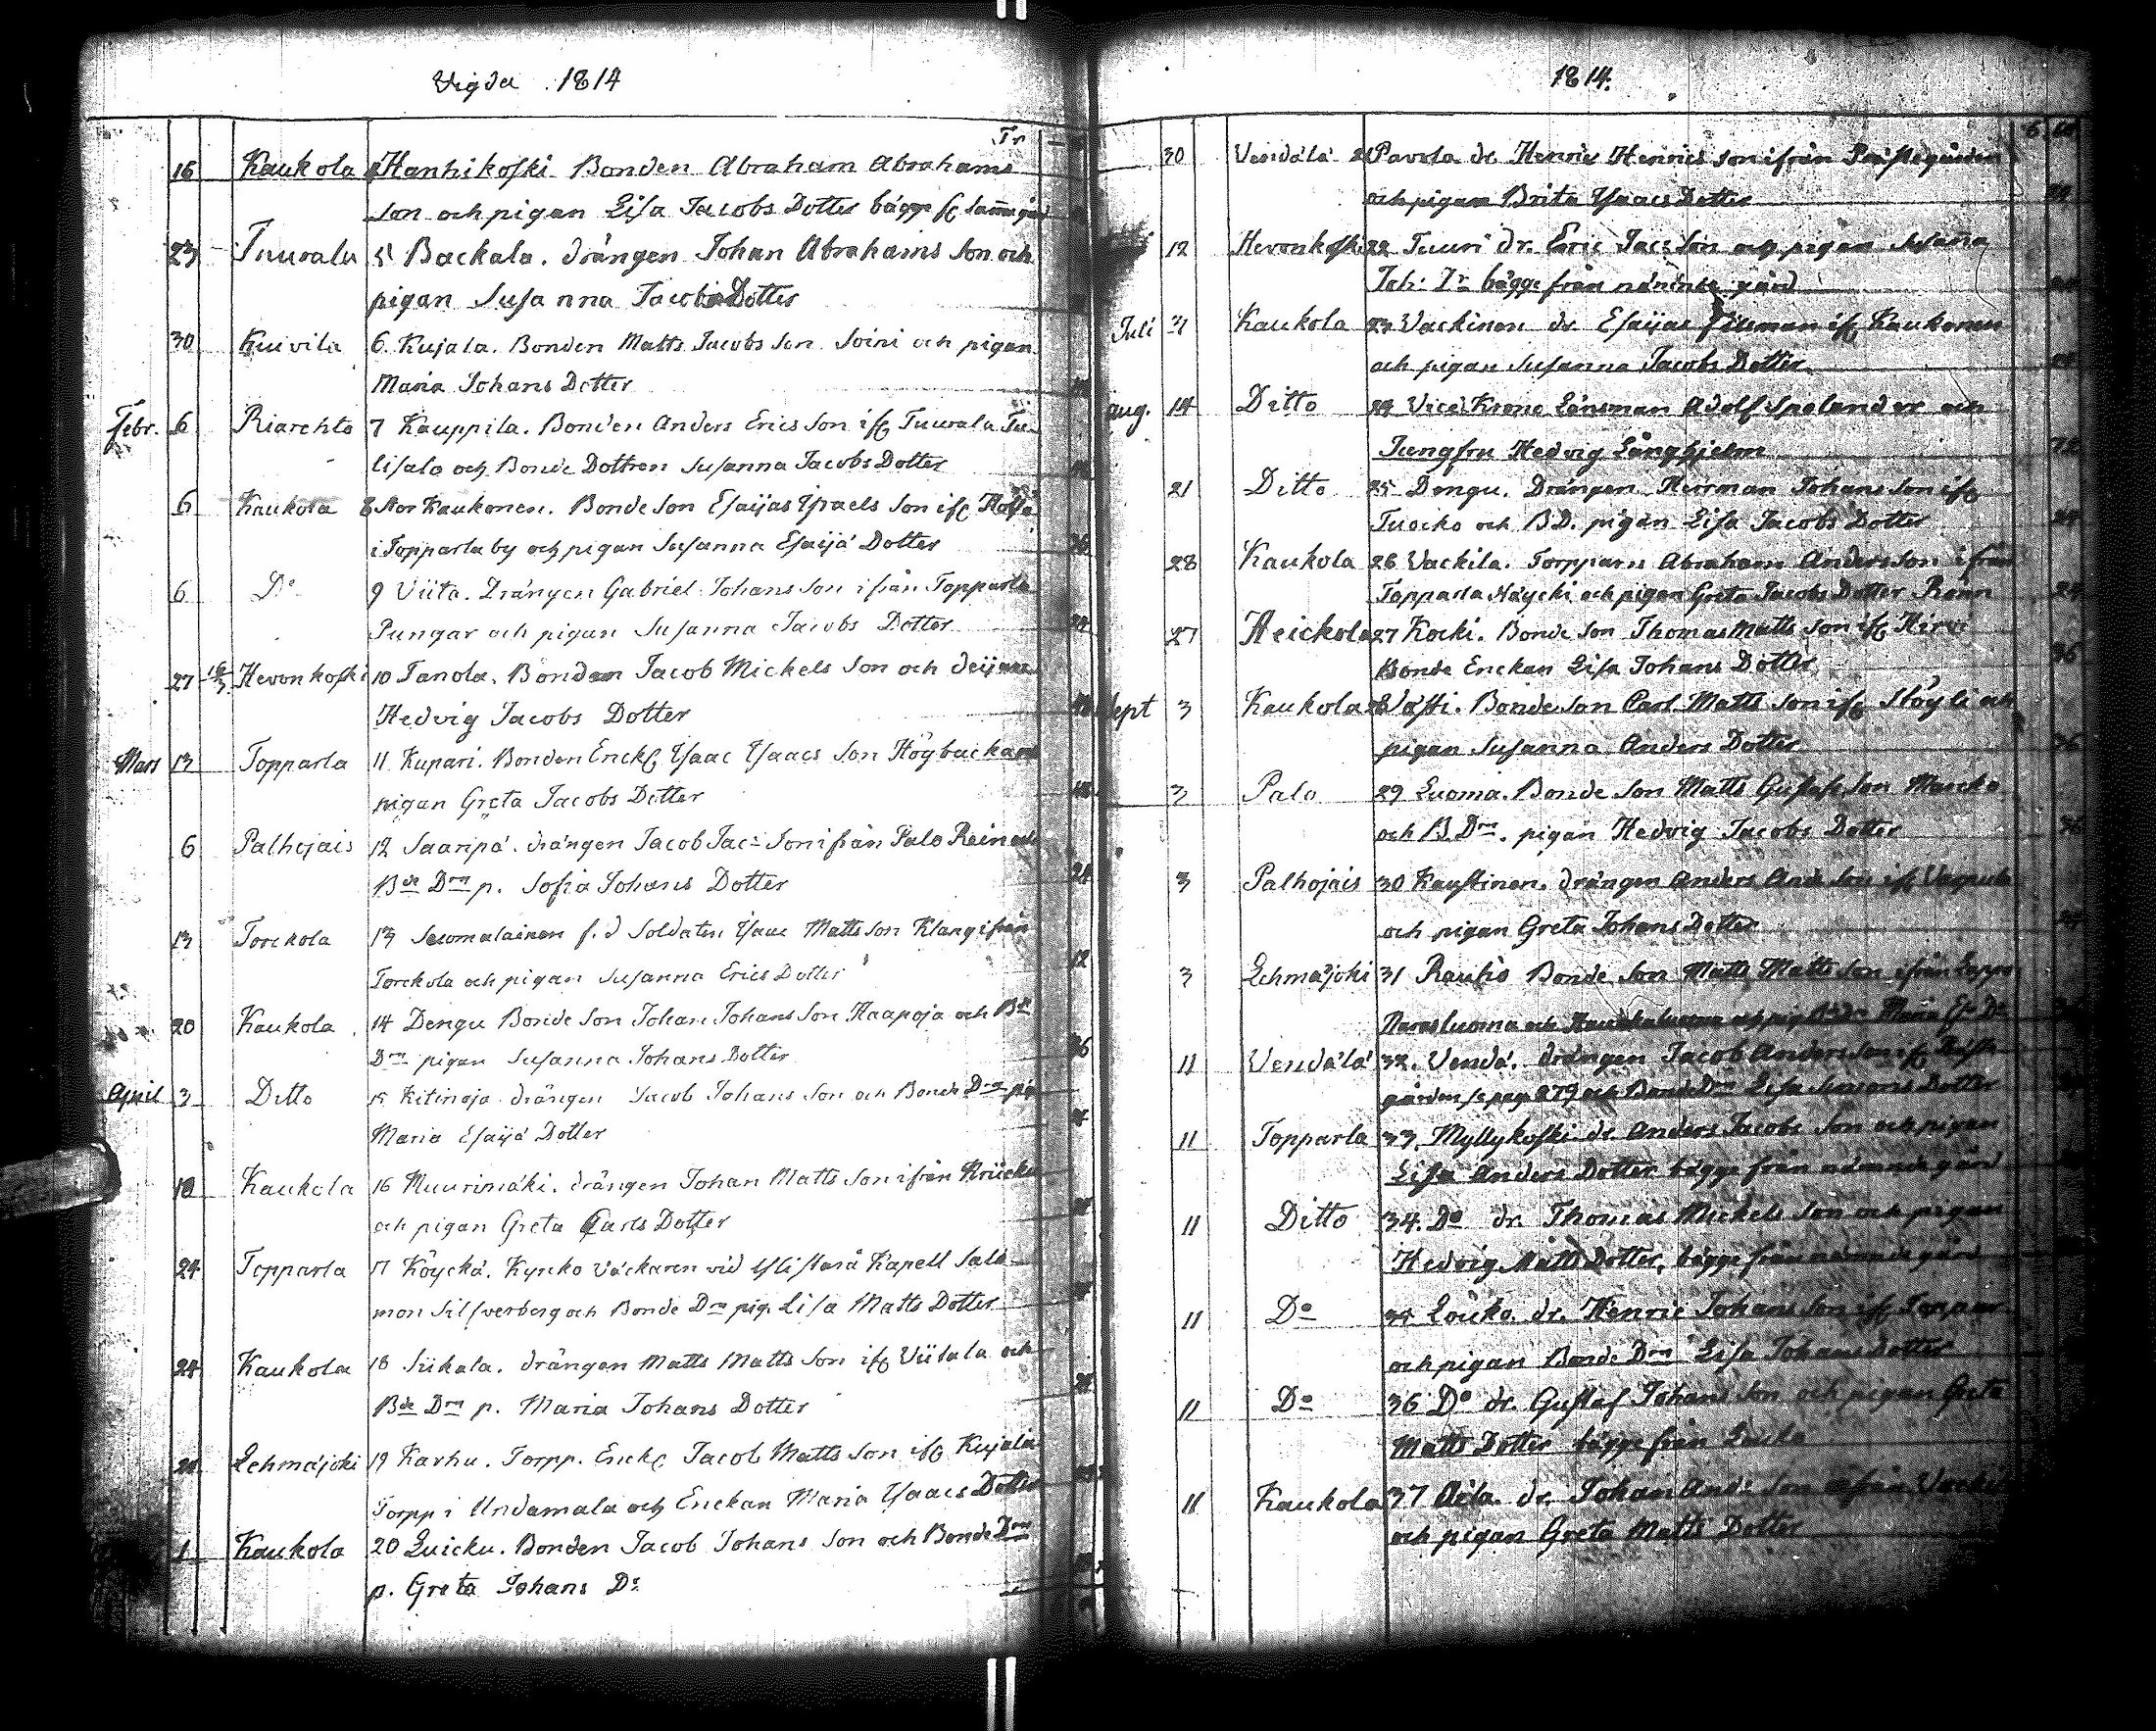 Vigda 1814
16 Kaukola 4 Hanhikoski Bonden Abraham Abrahams
Son och pigan Lisa Jacobs Dotter bägge fr samma gård
23 Tuurala 5 Backala. drängen Johan Abrahams Son och
pigan Susanna Jacobs Dotter
30 Kuivila 6. Kujala. Bonden Matts Jacobs Son Soini och pigan
Maria Johans Dotter
Febr. 6 Riarehto 7 Kauppila. Bonden Anders Erics Son ifr Tuurala Tu-
lisalo och Bonde Dottren Susanna Jacobs Dotter
6 Kaukola 8 Stor Kaukonen. Bonde Son Esaijas Israels Son ifr
i Topparla by och pigan Susanna Esaijä Dotter
6 Do 9 Viita. Drängen Gabriel Johans Son ifrån Topparla
Pungar och pigan Susanna Jacobs Dotter
27 Hevonkoski 10 Tanola. Bonden Jacob Mickels Son och
Hedvig Jacobs Dotter
Mars 13 Topparla 11 Kupari. Bonden Enckl Isaac Isaacs Son Högbacka
pigan Greta Jacobs Dotter
6 Palhojais 12 Saaripä. drängen Jacob Jac: Son ifrån Palo Rein
Bde Drn p. Sofia Johans Dotter
13 Torckola 13 Suomalainen f.d Soldaten Isaac Matts Son Klang ifrån
Torckola och pigan Susanna Erics Dotter
20 Kaukola 14 Dengu Bonde Son Johan Johans Son Haapoja och Bde
Drn pigan Susanna Johans Dotter
April 3 Ditto 15 Kitinoja drängen Jacob Johans Son och Bonde Drn pig
Maria Esaijä Dotter
18 Kaukola 16 Muurimäki. drängen Johan Matts Son ifrån Kriicku
och pigan Greta Carls Dotter
24 Topparla 17 Köyckä. Kyrko väckaren vid Ylistaro Kapell Salo-
mon Silfverberg och Bonde Drn pig. Lisa Matts Dotter
24 Kaukola 18 Siikala. drängen Matts Matts Son ifr Viitala och
Bde Drn p. Maria Johans Dotter
24 Lehmäjoki 19 Karhu. Torpp. Enckl Jacob Matts Son ifr Kujala
Torpp i Undamala och Enckan Maria Isaacs Dotter
1 Kaukola 20 Luicku. Bonden Jacob Johans Son och Bonde Drn
p. Greta Johans Dr
1814.
30 Vendälä 21 Pavola dr. Henric Henrics Son ifrån Prästegården
och pigan Brita Isaacs Dotter
12 Hevonkoski 22 Tuuri dr. Eric Jac: Son och pigan Susanna
Joh: Dr bägge från nämnde gård
Juli 31 Kaukola 23 Vackinen dr. Esaijas ifr Kaukonen
och pigan Susanna Jacobs Dotter.
Aug. 14 Ditto 24 Vice Krono Länsman Adolf Spolander och
Jungfru Hedvig Långhjelm
21 Ditto 25 Dengu. Drängen Herrman Johans Son ifr
Tuocko och B.D. pigan Lisa Jacobs Dotter
28 Kaukola 26 Vackila. Torpparn Abraham Anders Son ifrån
Topparla Näycki och pigan Greta Jacobs Dotter
27 Heickola 27 Kocki. Bonde Son Thomas Matts Son ifr Hirvi
Bonde Enckan Lisa Johans Dotter
Sept 3 Kaukola 28 Bonde Son Carl Matts Son ifr och
pigan Susanna Anders Dotter
3 Palo 29 Luoma. Bonde Son Matts Gustafs Son
och B Drn. pigan Hedvig Jacobs Dotter
3 Palhojais 30 Kaustinen. drängen Anders And: Son ifr
och pigan Greta Johans Dotter
3 Lehmäjoki 31 Rauhio Bonde Son Matts Matts Son ifrån
11 Vendälä 32. Vendä. drängen Jacob Anders Son ifr Präste-
gården se pag 279 och Bonde Drn Lisa Simons Dotter
11 Topparla 33. Myllykoski dr. Anders Jacobs Son och pigan
Lisa Anders Dotter bägge från nämnde gård
11 Ditto 34. Do dr. Thomas Mickels Son och pigan
Hedvig Matts Dotter, bägge från nämnde gård
11 Do 35 Louko. dr. Henric Johans Son ifr
och pigan Bonde Drn Lisa Johans Dotter
11 Do 36 Do dr. Gustaf Johans Son och pigan Greta
Matts Dotter bägge från
11 Kaukola 37 dr. Johan And: Son
och pigan Greta Matts Dotter